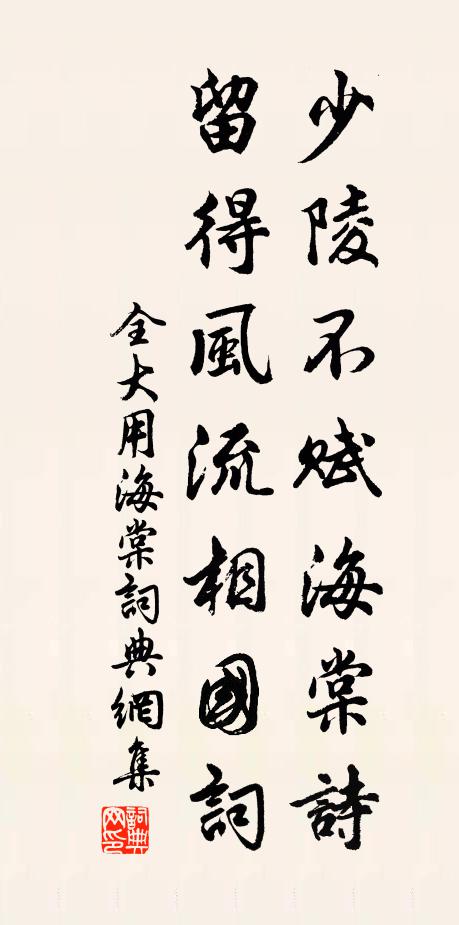 少陵不赋海棠詩
留得風流相國詞
全大用海棠詞典網集
詞典网印